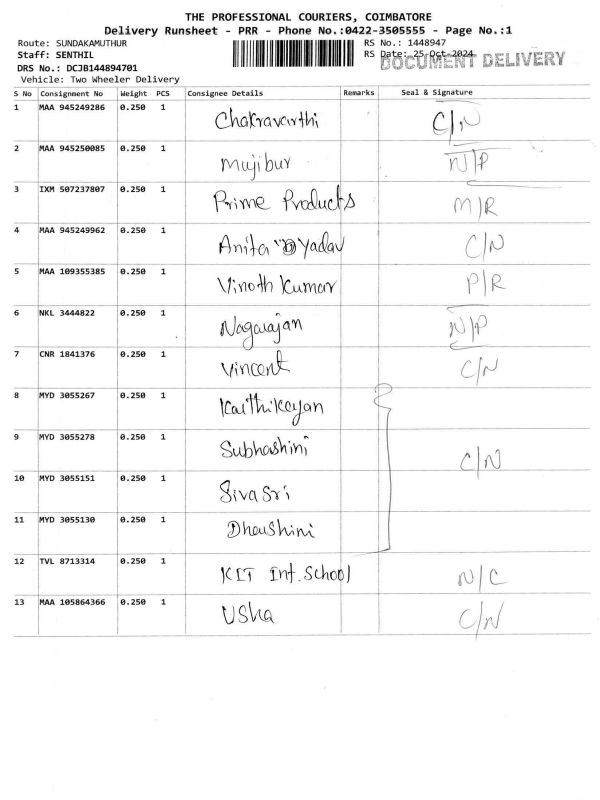 THE PROFESSIONAL COURIERS, COIMBATORE
Delivery Runsheet - PRR - Phone No.:0422-3505555 - Page No.:1
Route: SUNDAKAMUTHUR RS No.: 1448947
Staff: SENTHIL RS Date: 25-Oct-2024
DOCUMENT DELIVERY
DRS No.: DCJB144894701
Vehicle: Two Wheeler Delivery
S No Consignment No Weight PCS Consignee Details Remarks Seal & Signature
1 MAA 945249286 0.250 1 Chakravarthi C/N
2 MAA 945250085 0.250 1 Mujibur N/P
3 IXM 507237807 0.250 1 Prime Products M/R
4 MAA 945249962 0.250 1 Anita Yadav C/N
5 MAA 109355385 0.250 1 Vinoth Kumar P/R
6 NKL 3444822 0.250 1 Nagarajan N/P
7 CNR 1841376 0.250 1 Vincent C/N
8 MYD 3055267 0.250 1 Karthikeyan
9 MYD 3055278 0.250 1 Subhashini C/N
10 MYD 3055151 0.250 1 Sivasri
11 MYD 3055130 0.250 1 Dharshini
12 TVL 8713314 0.250 1 KIT Int. School N/C
13 MAA 105864366 0.250 1 Usha C/N